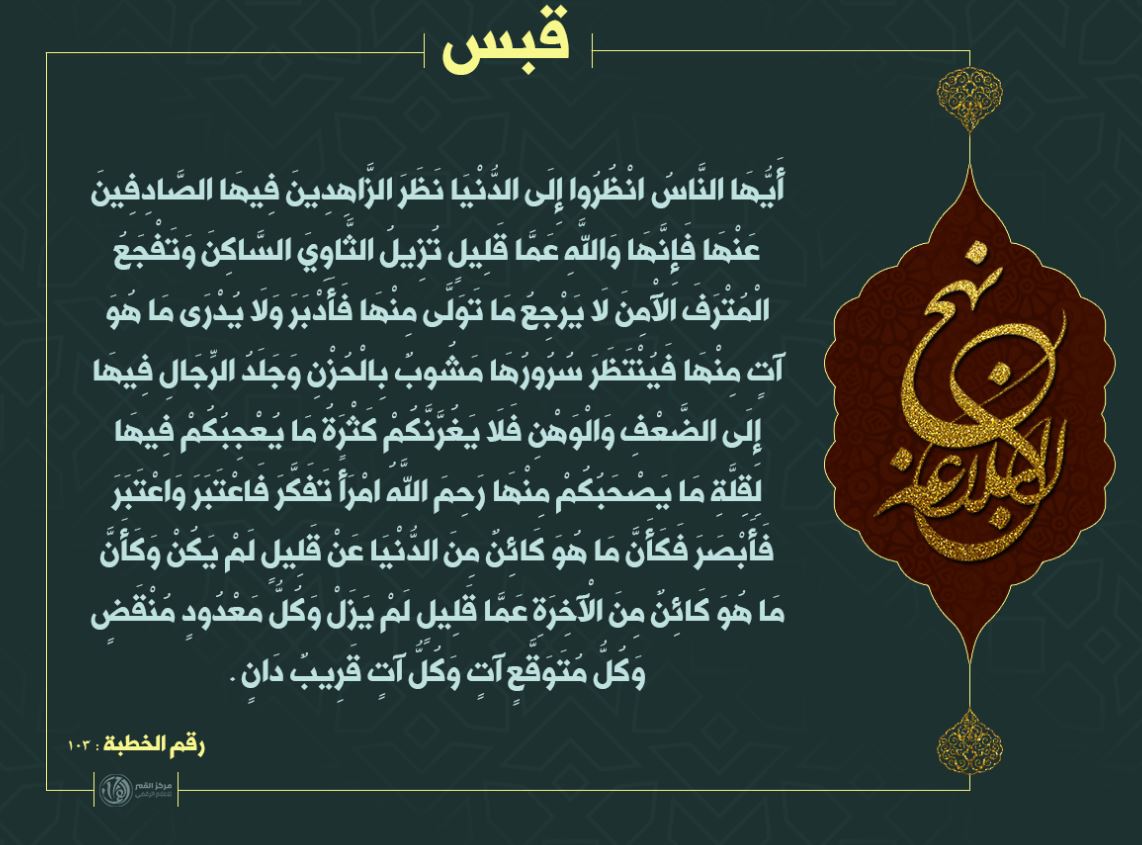 قبس
أَيُّهَا النَّاسُ انْظُرُوا إِلَى الدُّنْيَا نَظَرَ الزَّاهِدِينَ فِيهَا الصَّادِفِينَ
عَنْهَا فَإِنَّهَا وَاللَّهِ عَمَّا قَلِيلٍ تُزِيلُ الثَّاوِيَ السَّاكِنَ وَتَفْجَعُ
الْمُتْرَفَ الْآمِنَ لَا يَرْجِعُ مَا تَوَلَّى مِنْهَا فَأَدْبَرَ وَلَا يُدْرَى مَا هُوَ
آتٍ مِنْهَا فَيُنْتَظَرَ سُرُورُهَا مَشُوبٌ بِالْحُزْنِ وَجَلَدُ الرِّجَالِ فِيهَا
إِلَى الضَّعْفِ وَالْوَهْنِ فَلَا يَغُرَّنَّكُمْ كَثْرَةُ مَا يُعْجِبُكُمْ فِيهَا
لِقِلَّةِ مَا يَصْحَبُكُمْ مِنْهَا رَحِمَ اللَّهُ امْرَأً تَفَكَّرَ فَاعْتَبَرَ وَاعْتَبَرَ
فَأَبْصَرَ فَكَأَنَّ مَا هُوَ كَائِنٌ مِنَ الدُّنْيَا عَنْ قَلِيلٍ لَمْ يَكُنْ وَكَأَنَّ
مَا هُوَ كَائِنٌ مِنَ الْآخِرَةِ عَمَّا قَلِيلٍ لَمْ يَزَلْ وَكُلُّ مَعْدُودٍ مُنْقَضٍ
وَكُلُّ مُتَوَقَّعٍ آتٍ وَكُلُّ آتٍ قَرِيبٌ دَانٍ .
نهج
البلاغة
رقم الخطبة : ١٠٣
مركز القمر
للاعلام الرقمي